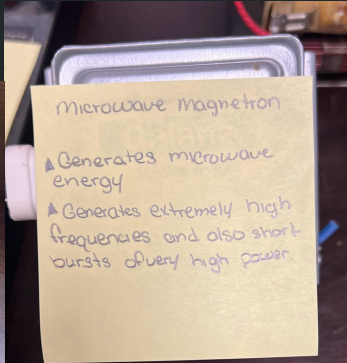 Microwave Magnetron
▲ Generates microwave
energy
▲ Generates extremely high
frequencies and also short
bursts of very high power.